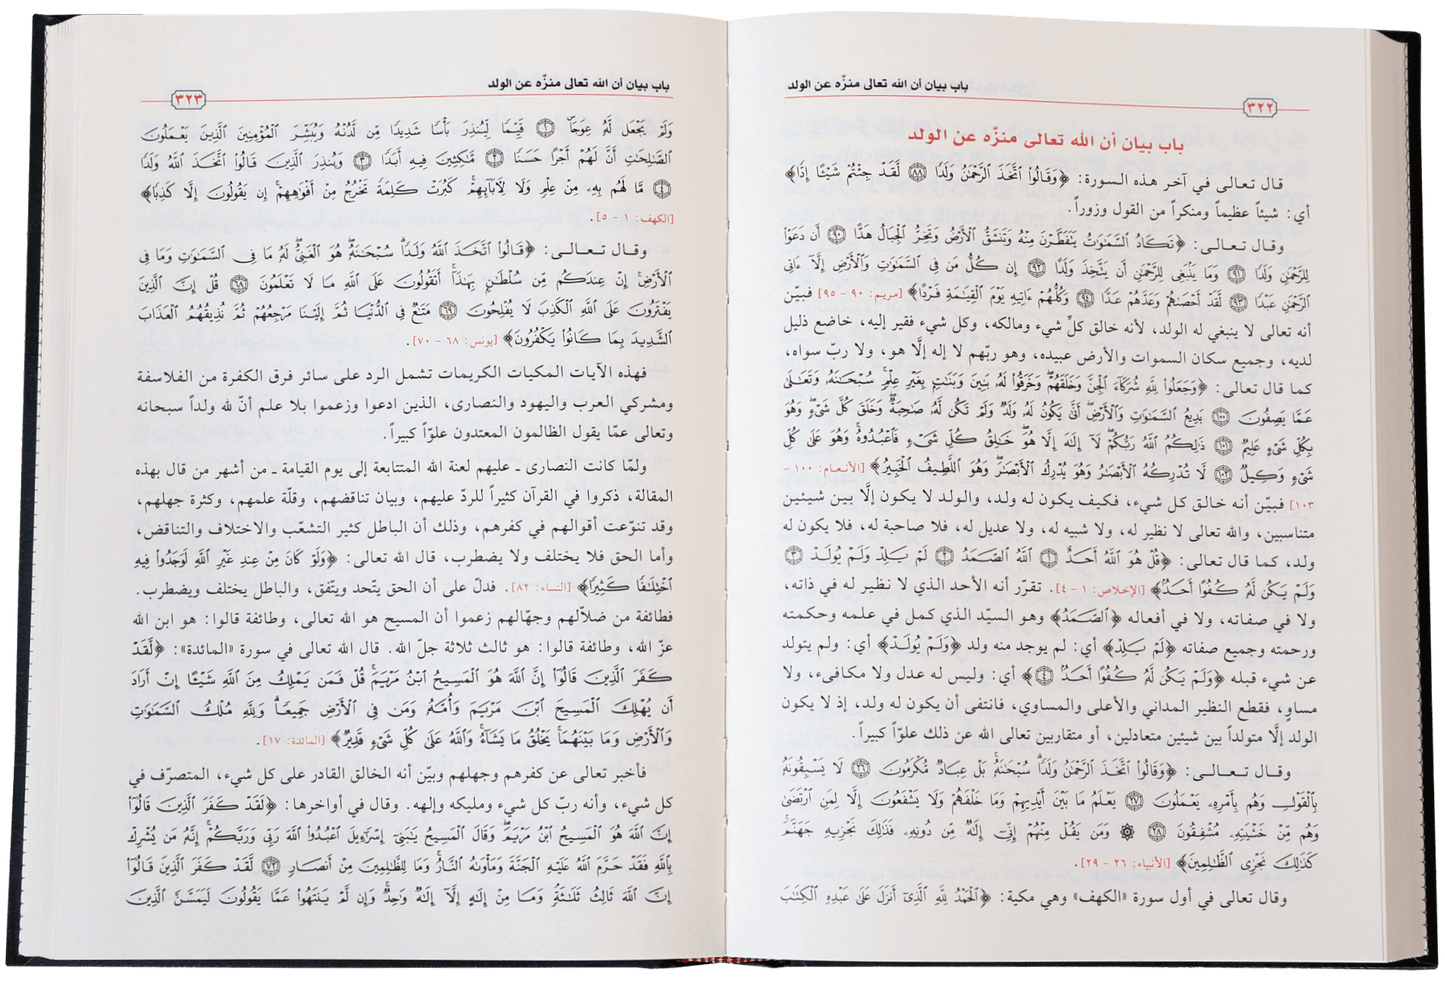 باب بيان أن الله تعالى منزّه عن الولد
٣٢٢
باب بيان أن الله تعالى منزّه عن الولد
قال تعالى في آخر هذه السورة: ﴿وَقَالُوا۟ ٱتَّخَذَ ٱلرَّحْمَٰنُ وَلَدًا ٨٨ لَّقَدْ جِئْتُمْ شَيْـًٔا إِدًّا﴾
أي: شيئاً عظيماً ومنكراً من القول وزوراً.
وقال تعالى: ﴿تَكَادُ ٱلسَّمَٰوَٰتُ يَتَفَطَّرْنَ مِنْهُ وَتَنشَقُّ ٱلْأَرْضُ وَتَخِرُّ ٱلْجِبَالُ هَدًّا ٩٠ أَن دَعَوْا۟
لِلرَّحْمَٰنِ وَلَدًا ٩١ وَمَا يَنۢبَغِى لِلرَّحْمَٰنِ أَن يَتَّخِذَ وَلَدًا ٩٢ إِن كُلُّ مَن فِى ٱلسَّمَٰوَٰتِ وَٱلْأَرْضِ إِلَّآ ءَاتِى
ٱلرَّحْمَٰنِ عَبْدًا ٩٣ لَّقَدْ أَحْصَىٰهُمْ وَعَدَّهُمْ عَدًّا ٩٤ وَكُلُّهُمْ ءَاتِيهِ يَوْمَ ٱلْقِيَٰمَةِ فَرْدًا﴾ [مريم: ٩٠ - ٩٥] فبيّن
أنه تعالى لا ينبغي له الولد، لأنه خالق كلِّ شيء ومالكه، وكل شيء فقير إليه، خاضع ذليل
لديه، وجميع سكان السموات والأرض عبيده، وهو ربّهم لا إله إلَّا هو، ولا ربّ سواه،
كما قال تعالى: ﴿وَجَعَلُوا۟ لِلَّهِ شُرَكَآءَ ٱلْجِنَّ وَخَلَقَهُمْ وَخَرَقُوا۟ لَهُۥ بَنِينَ وَبَنَٰتٍۭ بِغَيْرِ عِلْمٍ سُبْحَٰنَهُۥ وَتَعَٰلَىٰ
عَمَّا يَصِفُونَ ١٠٠ بَدِيعُ ٱلسَّمَٰوَٰتِ وَٱلْأَرْضِ أَنَّىٰ يَكُونُ لَهُۥ وَلَدٌ وَلَمْ تَكُن لَّهُۥ صَٰحِبَةٌ وَخَلَقَ كُلَّ شَىْءٍ وَهُوَ
بِكُلِّ شَىْءٍ عَلِيمٌ ١٠١ ذَٰلِكُمُ ٱللَّهُ رَبُّكُمْ لَآ إِلَٰهَ إِلَّا هُوَ خَٰلِقُ كُلِّ شَىْءٍ فَٱعْبُدُوهُ وَهُوَ عَلَىٰ كُلِّ
شَىْءٍ وَكِيلٌ ١٠٢ لَّا تُدْرِكُهُ ٱلْأَبْصَٰرُ وَهُوَ يُدْرِكُ ٱلْأَبْصَٰرَ وَهُوَ ٱللَّطِيفُ ٱلْخَبِيرُ﴾ [الأنعام: ١٠٠ -
١٠٣] فبيّن أنه خالق كل شيء، فكيف يكون له ولد، والولد لا يكون إلَّا بين شيئين
متناسبين، والله تعالى لا نظير له، ولا شبيه له، ولا عديل له، فلا صاحبة له، فلا يكون له
ولد، كما قال تعالى: ﴿قُلْ هُوَ ٱللَّهُ أَحَدٌ ١ ٱللَّهُ ٱلصَّمَدُ ٢ لَمْ يَلِدْ وَلَمْ يُولَدْ ٣
وَلَمْ يَكُن لَّهُۥ كُفُوًا أَحَدٌ﴾ [الإخلاص: ١ - ٤]. تقرّر أنه الأحد الذي لا نظير له في ذاته،
ولا في صفاته، ولا في أفعاله ﴿ٱلصَّمَدُ﴾ وهو السيّد الذي كمل في علمه وحكمته
ورحمته وجميع صفاته ﴿لَمْ يَلِدْ﴾ أي: لم يوجد منه ولد ﴿وَلَمْ يُولَدْ﴾ أي: ولم يتولد
عن شيء قبله ﴿وَلَمْ يَكُن لَّهُۥ كُفُوًا أَحَدٌ ٤﴾ أي: وليس له عدل ولا مكافىء، ولا
مساوٍ، فقطع النظير المداني والأعلى والمساوي، فانتفى أن يكون له ولد، إذ لا يكون
الولد إلَّا متولداً بين شيئين متعادلين، أو متقاربين تعالى الله عن ذلك علوّاً كبيراً.
وقال تعالى: ﴿وَقَالُوا۟ ٱتَّخَذَ ٱلرَّحْمَٰنُ وَلَدًا سُبْحَٰنَهُۥ بَلْ عِبَادٌ مُّكْرَمُونَ ٢٦ لَا يَسْبِقُونَهُۥ
بِٱلْقَوْلِ وَهُم بِأَمْرِهِۦ يَعْمَلُونَ ٢٧ يَعْلَمُ مَا بَيْنَ أَيْدِيهِمْ وَمَا خَلْفَهُمْ وَلَا يَشْفَعُونَ إِلَّا لِمَنِ ٱرْتَضَىٰ
وَهُم مِّنْ خَشْيَتِهِۦ مُشْفِقُونَ ٢٨ ۞ وَمَن يَقُلْ مِنْهُمْ إِنِّىٓ إِلَٰهٌ مِّن دُونِهِۦ فَذَٰلِكَ نَجْزِيهِ جَهَنَّمَ
كَذَٰلِكَ نَجْزِى ٱلظَّٰلِمِينَ﴾ [الأنبياء: ٢٦ - ٢٩].
وقال تعالى في أول سورة «الكهف» وهي مكية: ﴿ٱلْحَمْدُ لِلَّهِ ٱلَّذِىٓ أَنزَلَ عَلَىٰ عَبْدِهِ ٱلْكِتَٰبَ
باب بيان أن الله تعالى منزّه عن الولد
٣٢٣
وَلَمْ يَجْعَل لَّهُۥ عِوَجَا ١ قَيِّمًا لِّيُنذِرَ بَأْسًا شَدِيدًا مِّن لَّدُنْهُ وَيُبَشِّرَ ٱلْمُؤْمِنِينَ ٱلَّذِينَ يَعْمَلُونَ
ٱلصَّٰلِحَٰتِ أَنَّ لَهُمْ أَجْرًا حَسَنًا ٢ مَّٰكِثِينَ فِيهِ أَبَدًا ٣ وَيُنذِرَ ٱلَّذِينَ قَالُوا۟ ٱتَّخَذَ ٱللَّهُ وَلَدًا
٤ مَّا لَهُم بِهِۦ مِنْ عِلْمٍ وَلَا لِـَٔابَآئِهِمْ كَبُرَتْ كَلِمَةً تَخْرُجُ مِنْ أَفْوَٰهِهِمْ إِن يَقُولُونَ إِلَّا كَذِبًا﴾
[الكهف: ١ - ٥].
وقال تعالى: ﴿قَالُوا۟ ٱتَّخَذَ ٱللَّهُ وَلَدًا سُبْحَٰنَهُۥ هُوَ ٱلْغَنِىُّ لَهُۥ مَا فِى ٱلسَّمَٰوَٰتِ وَمَا فِى
ٱلْأَرْضِ إِنْ عِندَكُم مِّن سُلْطَٰنٍۭ بِهَٰذَآ أَتَقُولُونَ عَلَى ٱللَّهِ مَا لَا تَعْلَمُونَ ٦٨ قُلْ إِنَّ ٱلَّذِينَ
يَفْتَرُونَ عَلَى ٱللَّهِ ٱلْكَذِبَ لَا يُفْلِحُونَ ٦٩ مَتَٰعٌ فِى ٱلدُّنْيَا ثُمَّ إِلَيْنَا مَرْجِعُهُمْ ثُمَّ نُذِيقُهُمُ ٱلْعَذَابَ
ٱلشَّدِيدَ بِمَا كَانُوا۟ يَكْفُرُونَ﴾ [يونس: ٦٨ - ٧٠].
فهذه الآيات المكيات الكريمات تشمل الرد على سائر فرق الكفرة من الفلاسفة
ومشركي العرب واليهود والنصارى، الذين ادعوا وزعموا بلا علم أنّ لله ولداً سبحانه
وتعالى عمّا يقول الظالمون المعتدون علوّاً كبيراً.
ولمّا كانت النصارى ـ عليهم لعنة الله المتتابعة إلى يوم القيامة ـ من أشهر من قال بهذه
المقالة، ذكروا في القرآن كثيراً للردّ عليهم، وبيان تناقضهم، وقلّة علمهم، وكثرة جهلهم،
وقد تنوّعت أقوالهم في كفرهم، وذلك أن الباطل كثير التشعّب والاختلاف والتناقض،
وأما الحق فلا يختلف ولا يضطرب، قال الله تعالى: ﴿وَلَوْ كَانَ مِنْ عِندِ غَيْرِ ٱللَّهِ لَوَجَدُوا۟ فِيهِ
ٱخْتِلَٰفًا كَثِيرًا﴾ [النساء: ٨٢]. فدلّ على أن الحق يتّحد ويتّفق، والباطل يختلف ويضطرب.
فطائفة من ضلّالهم وجهّالهم زعموا أن المسيح هو الله تعالى، وطائفة قالوا: هو ابن الله
عزّ الله، وطائفة قالوا: هو ثالث ثلاثة جلّ الله. قال الله تعالى في سورة «المائدة»: ﴿لَّقَدْ
كَفَرَ ٱلَّذِينَ قَالُوٓا۟ إِنَّ ٱللَّهَ هُوَ ٱلْمَسِيحُ ٱبْنُ مَرْيَمَ قُلْ فَمَن يَمْلِكُ مِنَ ٱللَّهِ شَيْـًٔا إِنْ أَرَادَ
أَن يُهْلِكَ ٱلْمَسِيحَ ٱبْنَ مَرْيَمَ وَأُمَّهُۥ وَمَن فِى ٱلْأَرْضِ جَمِيعًا وَلِلَّهِ مُلْكُ ٱلسَّمَٰوَٰتِ
وَٱلْأَرْضِ وَمَا بَيْنَهُمَا يَخْلُقُ مَا يَشَآءُ وَٱللَّهُ عَلَىٰ كُلِّ شَىْءٍ قَدِيرٌ﴾ [المائدة: ١٧].
فأخبر تعالى عن كفرهم وجهلهم وبيّن أنه الخالق القادر على كل شيء، المتصرّف في
كل شيء، وأنه ربّ كل شيء ومليكه وإلهه. وقال في أواخرها: ﴿لَقَدْ كَفَرَ ٱلَّذِينَ قَالُوٓا۟
إِنَّ ٱللَّهَ هُوَ ٱلْمَسِيحُ ٱبْنُ مَرْيَمَ وَقَالَ ٱلْمَسِيحُ يَٰبَنِىٓ إِسْرَٰٓءِيلَ ٱعْبُدُوا۟ ٱللَّهَ رَبِّى وَرَبَّكُمْ إِنَّهُۥ مَن يُشْرِكْ
بِٱللَّهِ فَقَدْ حَرَّمَ ٱللَّهُ عَلَيْهِ ٱلْجَنَّةَ وَمَأْوَىٰهُ ٱلنَّارُ وَمَا لِلظَّٰلِمِينَ مِنْ أَنصَارٍ ٧٢ لَّقَدْ كَفَرَ ٱلَّذِينَ قَالُوٓا۟
إِنَّ ٱللَّهَ ثَالِثُ ثَلَٰثَةٍ وَمَا مِنْ إِلَٰهٍ إِلَّآ إِلَٰهٌ وَٰحِدٌ وَإِن لَّمْ يَنتَهُوا۟ عَمَّا يَقُولُونَ لَيَمَسَّنَّ ٱلَّذِينَ